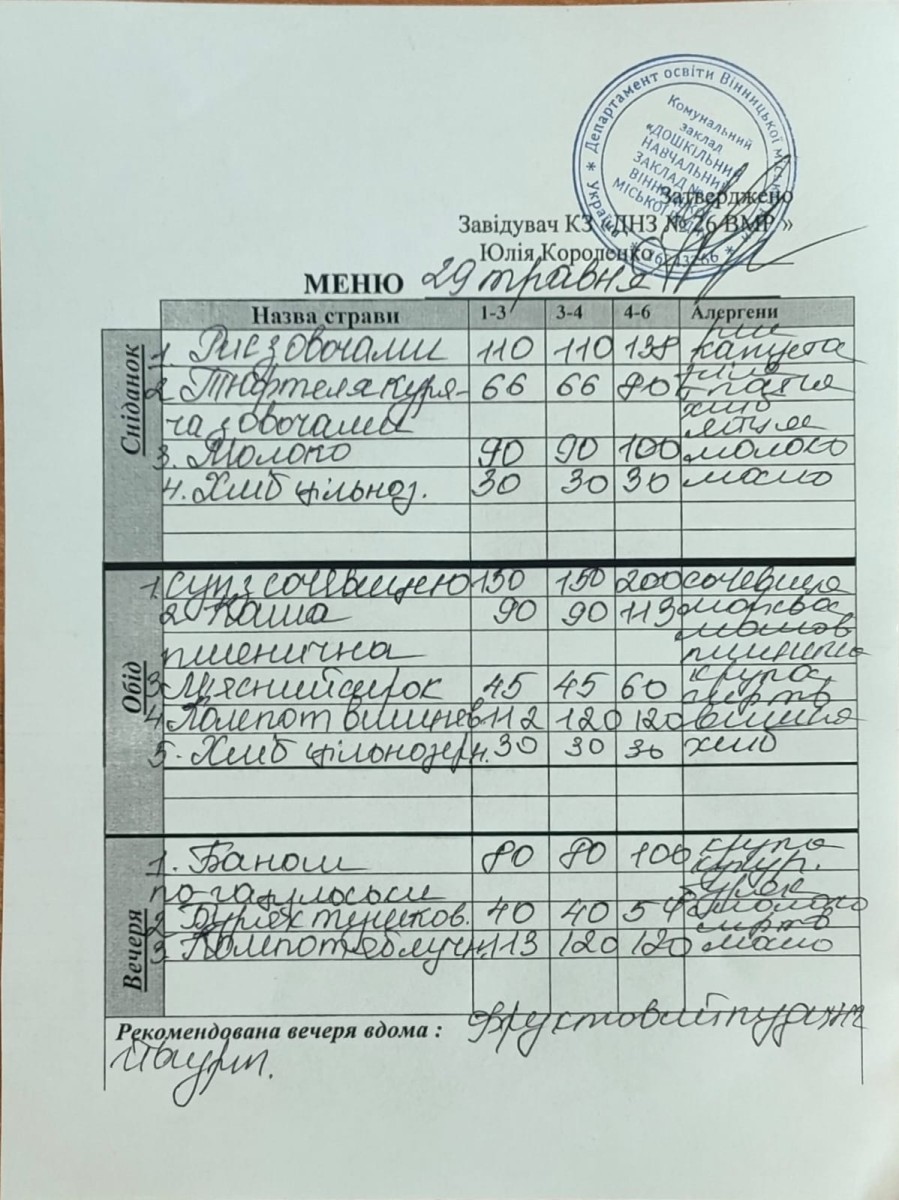 * Україна * Департамент освіти Вінницької міської
Комунальний
заклад
«ДОШКІЛЬНИЙ
НАВЧАЛЬНИЙ
ЗАКЛАД №
ВІННИЦЬКОЇ
МІСЬКОЇ
Затверджено
Завідувач КЗ «ДНЗ № 26 ВМР »
Юлія Короленко
МЕНЮ 29 травня
Назва страви 1-3 3-4 4-6 Алергени
Сніданок
1. Рис з овочами 110 110 138 рис капуста
2. Тюфтеля куря- 66 66 80
ча з овочами хліб яйця
3. Молоко 90 90 100 молоко
4. Хліб цільноз. 30 30 30 масло
Обід
1. Суп з сочевицею 150 150 200 сочевиця
2. Каша 90 90 113 морква
пшенична пшенична
3. М'ясний сирок 45 45 60 крупа
4. Компот вишнев. 112 120 120 вишня
5. Хліб цільнозерн. 30 30 30 хліб
Вечеря
1. Банош 80 80 100 крупа кукур.
по-гацульськи
2. Буряк тушков. 40 40 54 молоко
3. Компот яблучн. 113 120 120 масло
Рекомендована вечеря вдома : Фруктовий пудинг
Йогурт.